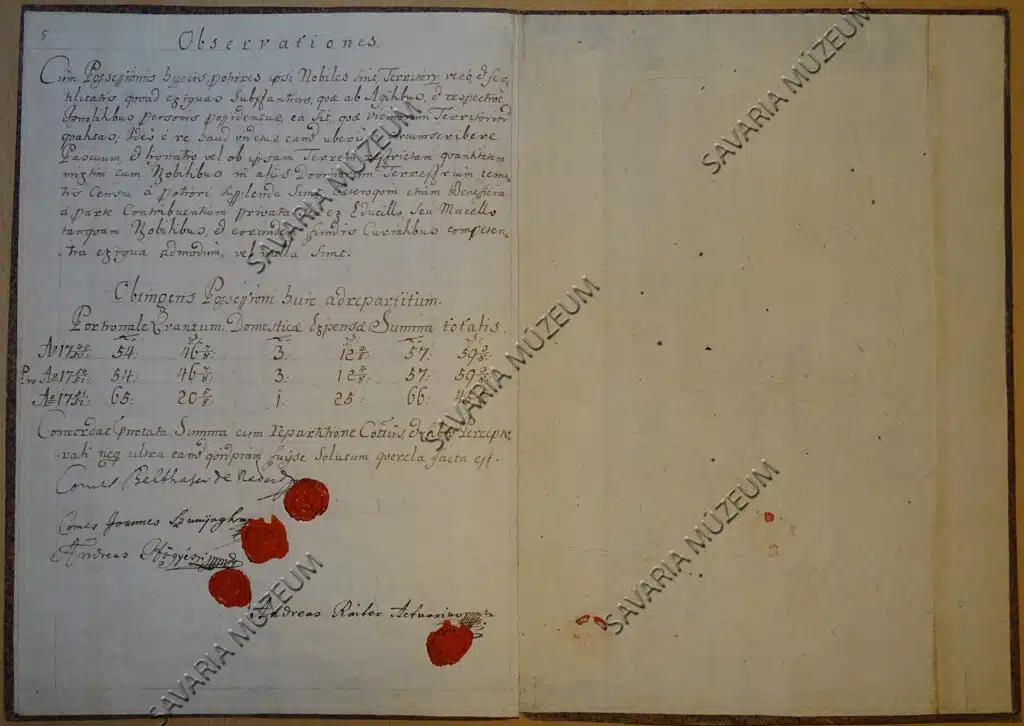 5
Observationes.
Cum Possessionis hujus, potiores ipsi Nobiles sint, Territory vero, & fer-
tilitatis quoad exiguas Substantias, quæ ab Agilibus, & respective
Ignobilibus personis possidentur, ea sit, quæ Vicinorum Territoriorum
qualitas; Ideo è re haud videtur eam uberius circumscribere.
Pascuum, & lignatio vel ob ipsam Terreni restrictam quantitatem
mixtim cum Nobilibus in aliis Dominorum Terrestrium
Censu à potiori supplenda sint. Cæteroqui etiam Beneficia
à parte Contribuentium privata ex Educillo, seu Macello
tanquam Nobilibus, & eorundem fundis Curialibus competen-
tia exigua admodum, vel nulla sint.
Obtingens Possessioni huic adrepartitum.
Portionale Quantum. Domesticæ Expensæ Summa totalis.
Aº 17 54: 46 3: 12 57: 59
Pro Aº 17 54: 46 3: 12 57: 59
Aº 17 65: 20 1: 25 66:
Concordat Summa cum repartitione Cottûs, &
neq ultra eam quidpiam fuisse solutum querela facta est.
Comes Belthasar de
Comes Joannes
Andreas Hőgyészi
Andreas Raiter Actuarius
SAVARIA MÚZEUM
SAVARIA MÚZEUM
SAVARIA MÚZEUM
SAVARIA MÚZEUM
SAVARIA MÚZEUM